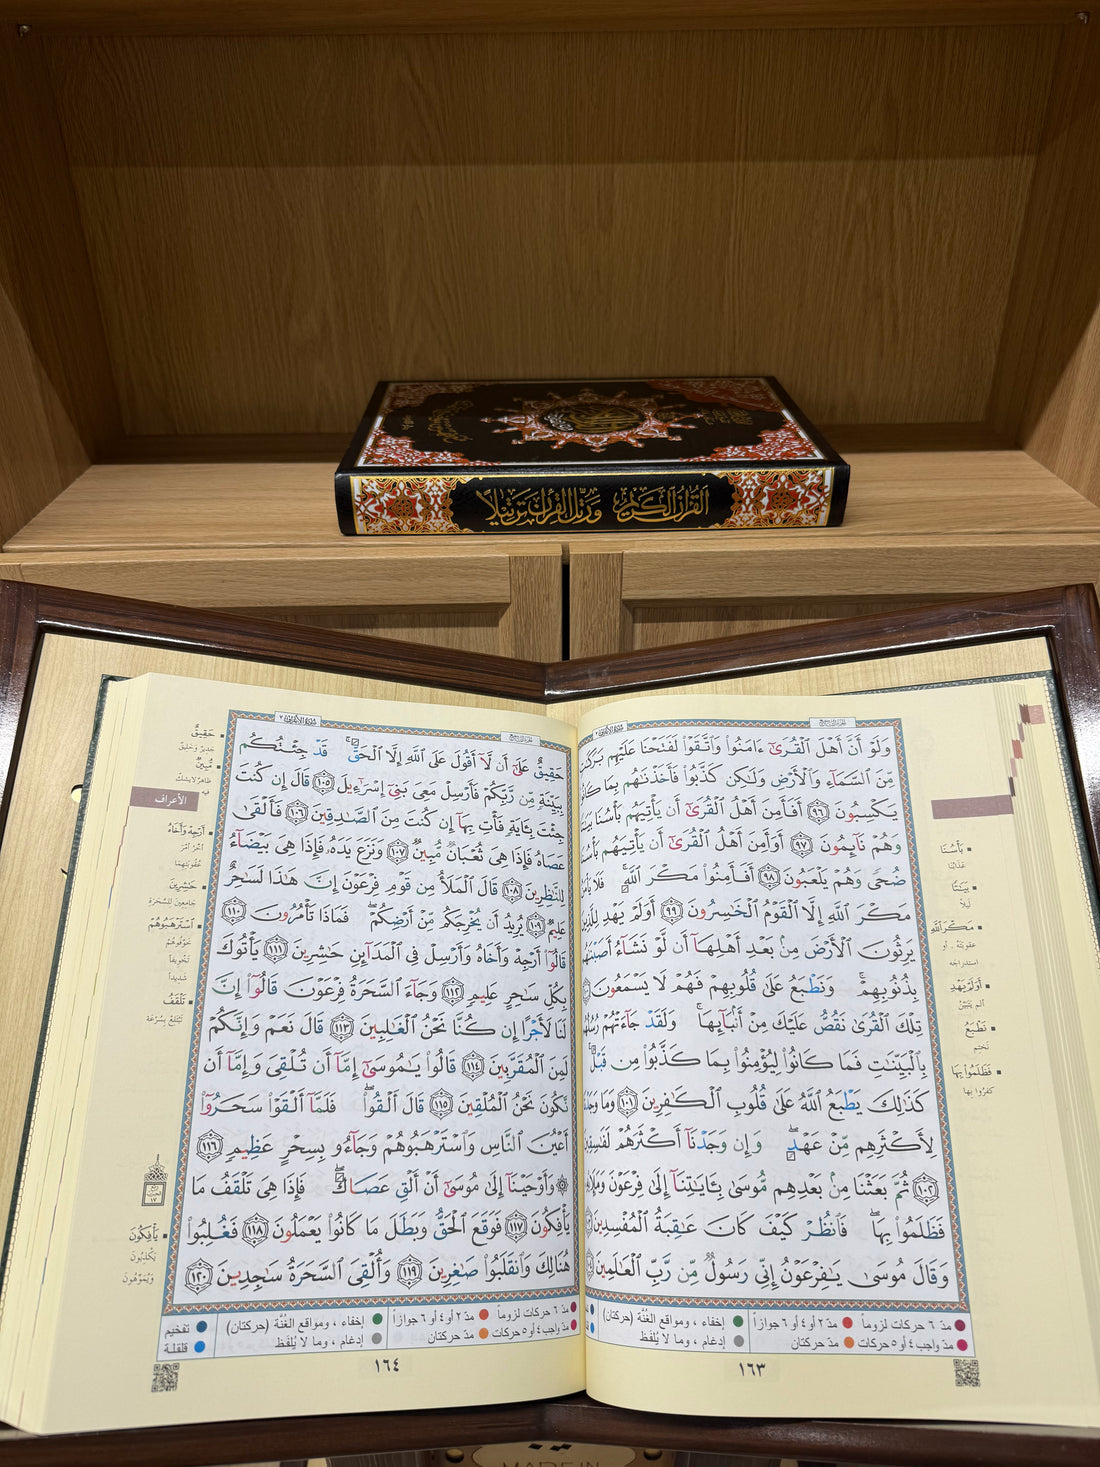 القرآن الكريم ورتل القرآن ترتيلا
وَلَوْ أَنَّ أَهْلَ ٱلْقُرَىٰٓ ءَامَنُوا۟ وَٱتَّقَوْا۟ لَفَتَحْنَا عَلَيْهِم بَرَكَٰتٍ
مِّنَ ٱلسَّمَآءِ وَٱلْأَرْضِ وَلَٰكِن كَذَّبُوا۟ فَأَخَذْنَٰهُم بِمَا كَانُوا۟
يَكْسِبُونَ ٩٦ أَفَأَمِنَ أَهْلُ ٱلْقُرَىٰٓ أَن يَأْتِيَهُم بَأْسُنَا بَيَٰتًا
وَهُمْ نَآئِمُونَ ٩٧ أَوَأَمِنَ أَهْلُ ٱلْقُرَىٰٓ أَن يَأْتِيَهُم بَأْسُنَا
ضُحًى وَهُمْ يَلْعَبُونَ ٩٨ أَفَأَمِنُوا۟ مَكْرَ ٱللَّهِ ۚ فَلَا يَأْمَنُ
مَكْرَ ٱللَّهِ إِلَّا ٱلْقَوْمُ ٱلْخَٰسِرُونَ ٩٩ أَوَلَمْ يَهْدِ لِلَّذِينَ
يَرِثُونَ ٱلْأَرْضَ مِنۢ بَعْدِ أَهْلِهَآ أَن لَّوْ نَشَآءُ أَصَبْنَٰهُم
بِذُنُوبِهِمْ ۚ وَنَطْبَعُ عَلَىٰ قُلُوبِهِمْ فَهُمْ لَا يَسْمَعُونَ
تِلْكَ ٱلْقُرَىٰ نَقُصُّ عَلَيْكَ مِنْ أَنۢبَآئِهَا ۚ وَلَقَدْ جَآءَتْهُمْ رُسُلُهُم
بِٱلْبَيِّنَٰتِ فَمَا كَانُوا۟ لِيُؤْمِنُوا۟ بِمَا كَذَّبُوا۟ مِن قَبْلُ ۚ
كَذَٰلِكَ يَطْبَعُ ٱللَّهُ عَلَىٰ قُلُوبِ ٱلْكَٰفِرِينَ ١٠١ وَمَا وَجَدْنَا
لِأَكْثَرِهِم مِّنْ عَهْدٍ ۖ وَإِن وَجَدْنَآ أَكْثَرَهُمْ لَفَٰسِقِينَ
١٠٢ ثُمَّ بَعَثْنَا مِنۢ بَعْدِهِم مُّوسَىٰ بِـَٔايَٰتِنَآ إِلَىٰ فِرْعَوْنَ وَمَلَإِيْهِۦ
فَظَلَمُوا۟ بِهَا ۖ فَٱنظُرْ كَيْفَ كَانَ عَٰقِبَةُ ٱلْمُفْسِدِينَ
وَقَالَ مُوسَىٰ يَٰفِرْعَوْنُ إِنِّى رَسُولٌ مِّن رَّبِّ ٱلْعَٰلَمِينَ
بَأْسُنَا
عَذَابُنَا
بَيَٰتًا
لَيْلًا
مَكْرَ ٱللَّهِ
عقوبته .. أو
استدراجه
أَوَلَمْ يَهْدِ
ألم يُبَيِّن
نَطْبَعُ
نختم
فَظَلَمُوا۟ بِهَا
كفروا بها
مدّ ٦ حركات لزوماً مدّ ٢ أو ٤ أو ٦ جوازاً إخفاء ، ومواقع الغُنَّة (حركتان)
مدّ واجب ٤ أو ٥ حركات مدّ حركتان إدغام ، وما لا يُلفَظ
١٦٣
سورة الأعراف ٧
حَقِيقٌ عَلَىٰٓ أَن لَّآ أَقُولَ عَلَى ٱللَّهِ إِلَّا ٱلْحَقَّ ۚ قَدْ جِئْتُكُم
بِبَيِّنَةٍ مِّن رَّبِّكُمْ فَأَرْسِلْ مَعِىَ بَنِىٓ إِسْرَٰٓءِيلَ ١٠٥ قَالَ إِن كُنتَ
جِئْتَ بِـَٔايَةٍ فَأْتِ بِهَآ إِن كُنتَ مِنَ ٱلصَّٰدِقِينَ ١٠٦ فَأَلْقَىٰ
عَصَاهُ فَإِذَا هِىَ ثُعْبَانٌ مُّبِينٌ ١٠٧ وَنَزَعَ يَدَهُۥ فَإِذَا هِىَ بَيْضَآءُ
لِلنَّٰظِرِينَ ١٠٨ قَالَ ٱلْمَلَأُ مِن قَوْمِ فِرْعَوْنَ إِنَّ هَٰذَا لَسَٰحِرٌ
عَلِيمٌ ١٠٩ يُرِيدُ أَن يُخْرِجَكُم مِّنْ أَرْضِكُمْ ۖ فَمَاذَا تَأْمُرُونَ ١١٠
قَالُوٓا۟ أَرْجِهْ وَأَخَاهُ وَأَرْسِلْ فِى ٱلْمَدَآئِنِ حَٰشِرِينَ ١١١ يَأْتُوكَ
بِكُلِّ سَٰحِرٍ عَلِيمٍ ١١٢ وَجَآءَ ٱلسَّحَرَةُ فِرْعَوْنَ قَالُوٓا۟ إِنَّ
لَنَا لَأَجْرًا إِن كُنَّا نَحْنُ ٱلْغَٰلِبِينَ ١١٣ قَالَ نَعَمْ وَإِنَّكُمْ
لَمِنَ ٱلْمُقَرَّبِينَ ١١٤ قَالُوا۟ يَٰمُوسَىٰٓ إِمَّآ أَن تُلْقِىَ وَإِمَّآ أَن
نَّكُونَ نَحْنُ ٱلْمُلْقِينَ ١١٥ قَالَ أَلْقُوا۟ ۖ فَلَمَّآ أَلْقَوْا۟ سَحَرُوٓا۟
أَعْيُنَ ٱلنَّاسِ وَٱسْتَرْهَبُوهُمْ وَجَآءُو بِسِحْرٍ عَظِيمٍ ١١٦
۞ وَأَوْحَيْنَآ إِلَىٰ مُوسَىٰٓ أَنْ أَلْقِ عَصَاكَ ۖ فَإِذَا هِىَ تَلْقَفُ مَا
يَأْفِكُونَ ١١٧ فَوَقَعَ ٱلْحَقُّ وَبَطَلَ مَا كَانُوا۟ يَعْمَلُونَ ١١٨ فَغُلِبُوا۟
هُنَالِكَ وَٱنقَلَبُوا۟ صَٰغِرِينَ ١١٩ وَأُلْقِىَ ٱلسَّحَرَةُ سَٰجِدِينَ ١٢٠
حَقِيقٌ
جديرٌ وخليقٌ
مُّبِينٌ
ظاهرٌ لا يشكُّ
فيه
الأعراف
أَرْجِهْ وَأَخَاهُ
أَخِّرْ أمْرَ
عقوبتهما
حَٰشِرِينَ
جامعين للسَّحرَة
ٱسْتَرْهَبُوهُمْ
خَوَّفُوهُمْ
تخويفاً
شديداً
تَلْقَفُ
تَبْتَلِعُ بِسُرْعَة
يَأْفِكُونَ
يَكْذِبُونَ
وَيُمَوِّهُونَ
مدّ ٦ حركات لزوماً مدّ ٢ أو ٤ أو ٦ جوازاً إخفاء ، ومواقع الغُنَّة (حركتان) تفخيم
مدّ واجب ٤ أو ٥ حركات مدّ حركتان إدغام ، وما لا يُلفَظ قلقلة
١٦٤
MADE IN